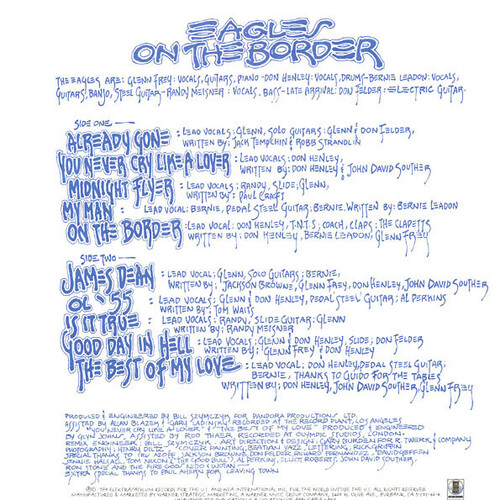 EAGLES
ON THE BORDER
THE EAGLES ARE: GLENN FREY: VOCALS, GUITARS, PIANO-DON HENLEY: VOCALS, DRUMS-BERNIE LEADON: VOCALS,
GUITARS, BANJO, STEEL GUITAR-RANDY MEISNER: VOCALS, BASS-LATE ARRIVAL: DON FELDER: ELECTRIC GUITAR
SIDE ONE
ALREADY GONE : LEAD VOCALS: GLENN, SOLO GUITARS: GLENN & DON FELDER,
WRITTEN BY: JACK TEMPCHIN & ROBB STRANDLIN
YOU NEVER CRY LIKE A LOVER : LEAD VOCALS: DON HENLEY,
WRITTEN BY: DON HENLEY & JOHN DAVID SOUTHER
MIDNIGHT FLYER : LEAD VOCALS: RANDY, SLIDE: GLENN,
WRITTEN BY: PAUL CRAFT
MY MAN : LEAD VOCAL: BERNIE, PEDAL STEEL GUITAR: BERNIE, WRITTEN BY: BERNIE LEADON
ON THE BORDER : LEAD VOCAL: DON HENLEY, T.N.T.S: COACH, CLAPS: THE CLAPETTS
WRITTEN BY: DON HENLEY, BERNIE LEADON, GLENN FREY
SIDE TWO
JAMES DEAN : LEAD VOCAL: GLENN, SOLO GUITARS: BERNIE,
WRITTEN BY: JACKSON BROWNE, GLENN FREY, DON HENLEY, JOHN DAVID SOUTHER
OL' 55 : LEAD VOCALS: GLENN & DON HENLEY, PEDAL STEEL GUITAR: AL PERKINS
WRITTEN BY: TOM WAITS
IS IT TRUE : LEAD VOCALS: RANDY, SLIDE GUITAR: GLENN
WRITTEN BY: RANDY MEISNER
GOOD DAY IN HELL : LEAD VOCALS: GLENN & DON HENLEY, SLIDE: DON FELDER
WRITTEN BY: GLENN FREY & DON HENLEY
THE BEST OF MY LOVE : LEAD VOCAL: DON HENLEY, PEDAL STEEL GUITAR:
BERNIE, THANKS TO GUIDO FOR THE TABLE,
WRITTEN BY: DON HENLEY, JOHN DAVID SOUTHER, GLENN FREY
PRODUCED & ENGINEERED BY BILL SZYMCZYK FOR PANDORA PRODUCTIONS LTD.
ASSISTED BY ALLAN BLAZEK & GARY LADINSKY RECORDED AT THE RECORD PLANT, LOS ANGELES
"YOU NEVER CRY LIKE A LOVER" & "THE BEST OF MY LOVE" PRODUCED & ENGINEERED
BY GLYN JOHNS, ASSISTED BY ROD THAER, RECORDED AT OLYMPIC STUDIOS, LONDON.
REMIX ENGINEER: BILL SZYMCZYK ART DIRECTION & DESIGN: GARY BURDEN FOR R. TWERK & COMPANY
PHOTOGRAPHY: HENRY DILTZ COVER PAINTING: BEATIEN YAZZ LETTERING: RICK GRIFFIN